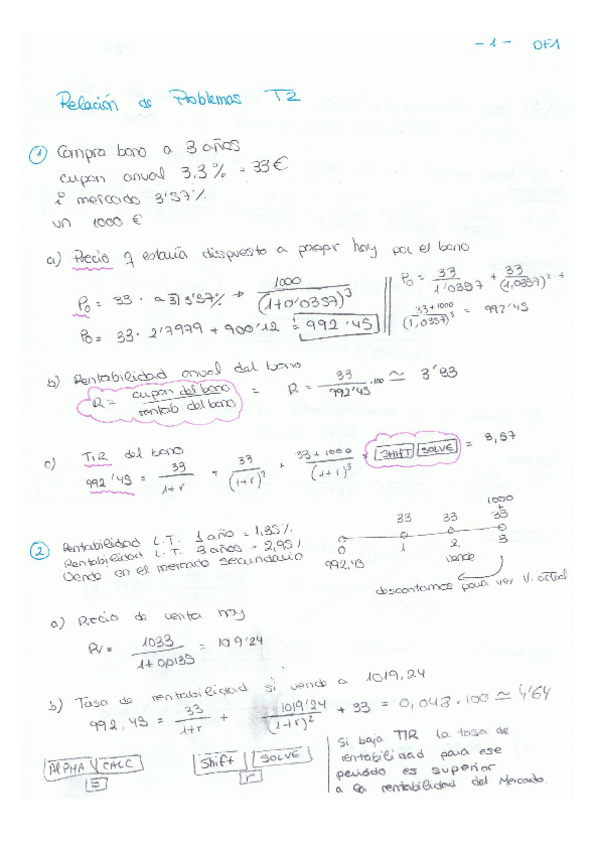 - 1 - DF1
Relación de Problemas T2
① Compra bono a 3 años
cupon anual 3.3% = 33€
i mercado 3'57%
VN 1000 €
a) Precio q estaría dispuesto a pagar hoy por el bono
P₀ = 33 · a 3] 3'57% + 1000 / (1+0'0357)³
P₀ = 33 · 2'7979 + 900'12 = 992'45
P₀ = 33 / 1'0357 + 33 / (1,0357)² +
33+1000 / (1,0357)³ = 992'45
b) Rentabilidad anual del bono
R = cupon del bono / rentab del bono = R = 33 / 992'45 · 100 ≃ 3'33
c) TIR del bono
992'45 = 33 / 1+r + 33 / (1+r)² + 33+1000 / (1+r)³ SHIFT SOLVE = 3,57
② Rentabilidad L.T. 1 año = 1,35%
Rentabilidad L.T. 3 años = 2,95%
Vendo en el mercado secundario
1000
+
33 33 33
0 1 2 3
992,45 vende
descontamos para ver V. actual
a) Precio de venta hoy
Pv = 1033 / 1+0,0135 = 1019'24
b) Tasa de rentabilidad si vende a 1019,24
992,45 = 33 / 1+r + 1019'24 / (1+r)² + 33 = 0,043 · 100 ≃ 4'64
ALPHA CALC
=
Shift SOLVE
r
Si baja TIR la tasa de
rentabilidad para ese
periodo es superior
a la rentabilidad del Mercado.